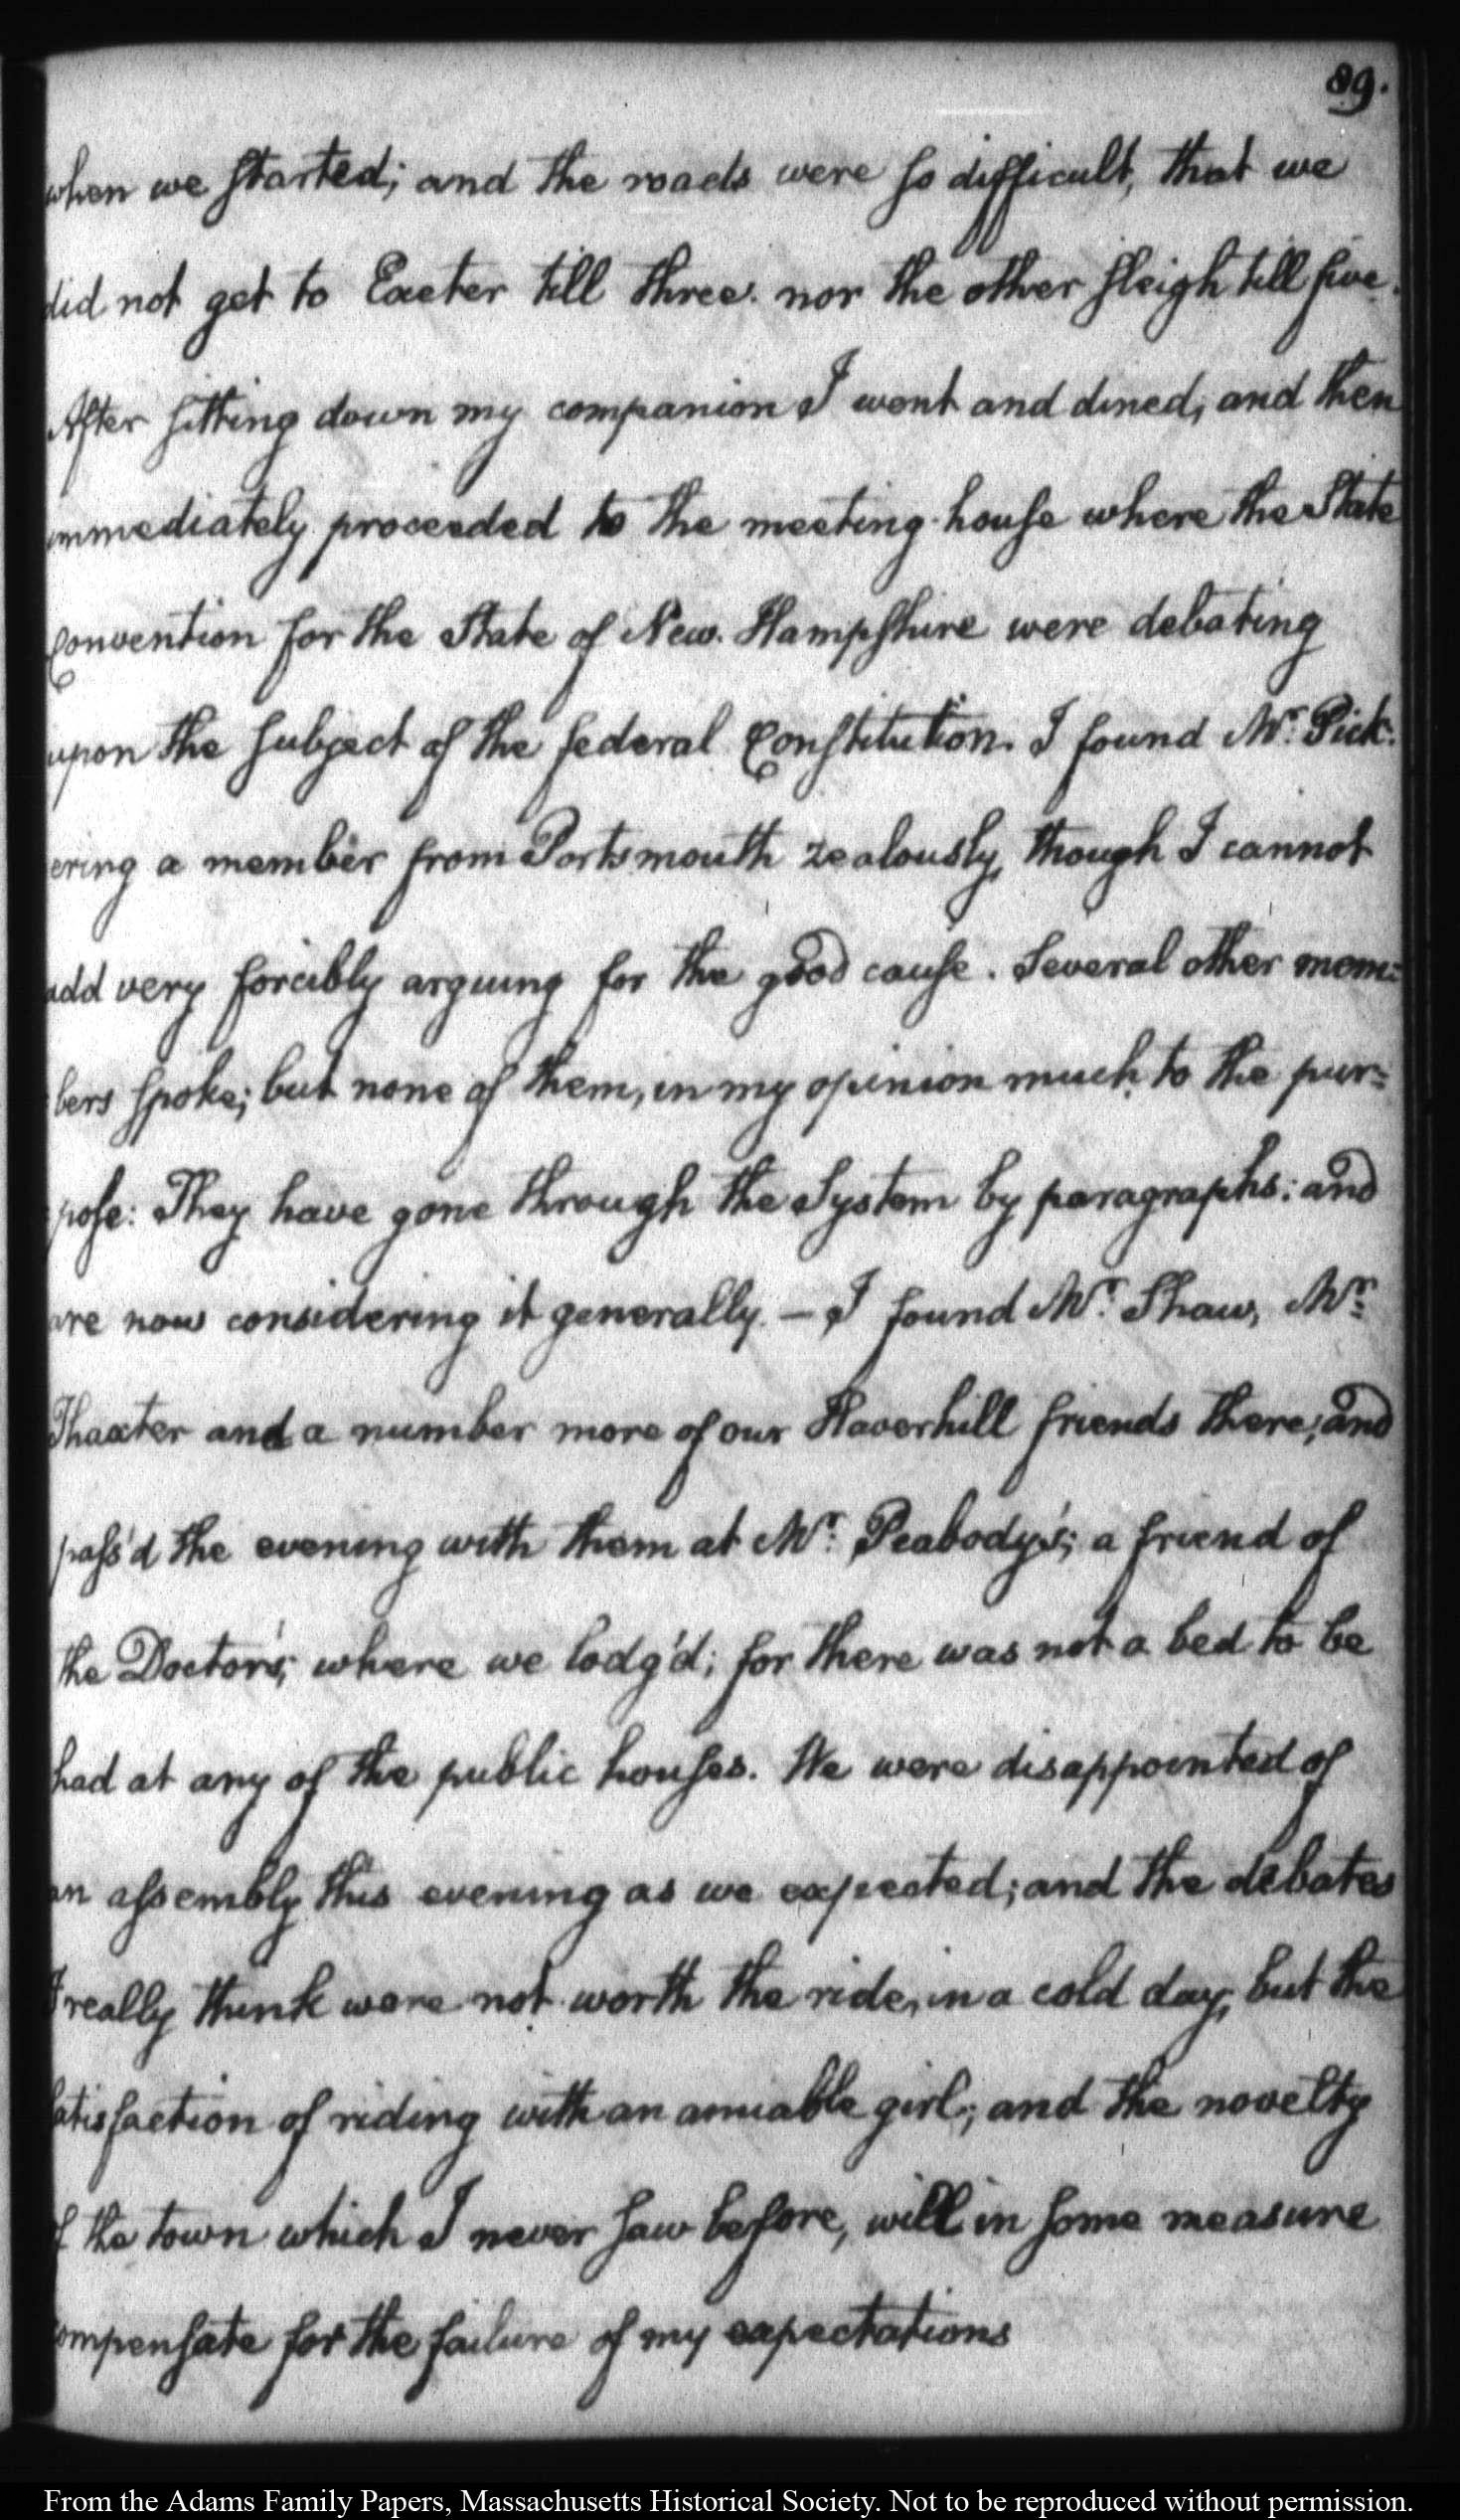 89.
when we started; and the roads were so difficult, that we
did not get to Exeter till three. nor the other sleigh till five.
After sitting down my companion I went and dined, and then
immediately proceeded to the meeting-house where the State
Convention for the State of New-Hampshire were debating
upon the subject of the federal Constitution. I found Mr. Pick-
ering a member from Portsmouth zealously, though I cannot
add very forcibly arguing for the good cause. Several other mem=
bers spoke; but none of them, in my opinion much to the pur=
pose: They have gone through the System by paragraphs: and
are now considering it generally. — I found Mr. Shaw, Mr.
Thaxter and a number more of our Haverhill friends there; and
pass'd the evening with them at Mr. Peabody's; a friend of
the Doctor's; where we lodg'd; for there was not a bed to be
had at any of the public houses. We were disappointed of
an assembly this evening as we expected; and the debates
I really think were not worth the ride, in a cold day, but the
satisfaction of riding with an amiable girl; and the novelty
of the town which I never saw before, will in some measure
compensate for the failure of my expectations
From the Adams Family Papers, Massachusetts Historical Society. Not to be reproduced without permission.